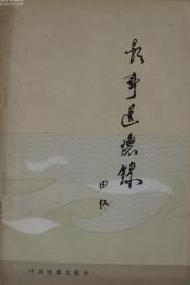 影事追懷錄
田汉
中国电影出版社